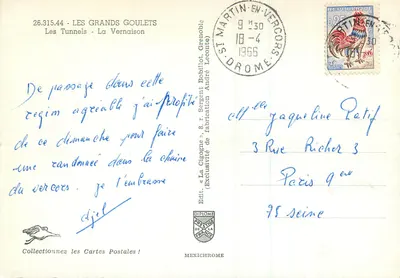 26.315.44 - LES GRANDS GOULETS
Les Tunnels - La Vernaison
De passage dans cette
region agréable j'ai profité
de ce dimanche pour faire
une randonnée dans la chaine
du vercors. je t'embrasse
djel
Collectionnez les Cartes Postales !
Edit. « La Cigogne », 8,7 Sergent Bobillot, Grenoble
(Exclusivité de fabrication André Leconte)
MEXICHROME
ST MARTIN-EN-VERCORS
9 H 30
18-4
1966
DROME
Mlle Jaqueline Patif
3 Rue Richer 3
Paris 9me
75 Seine